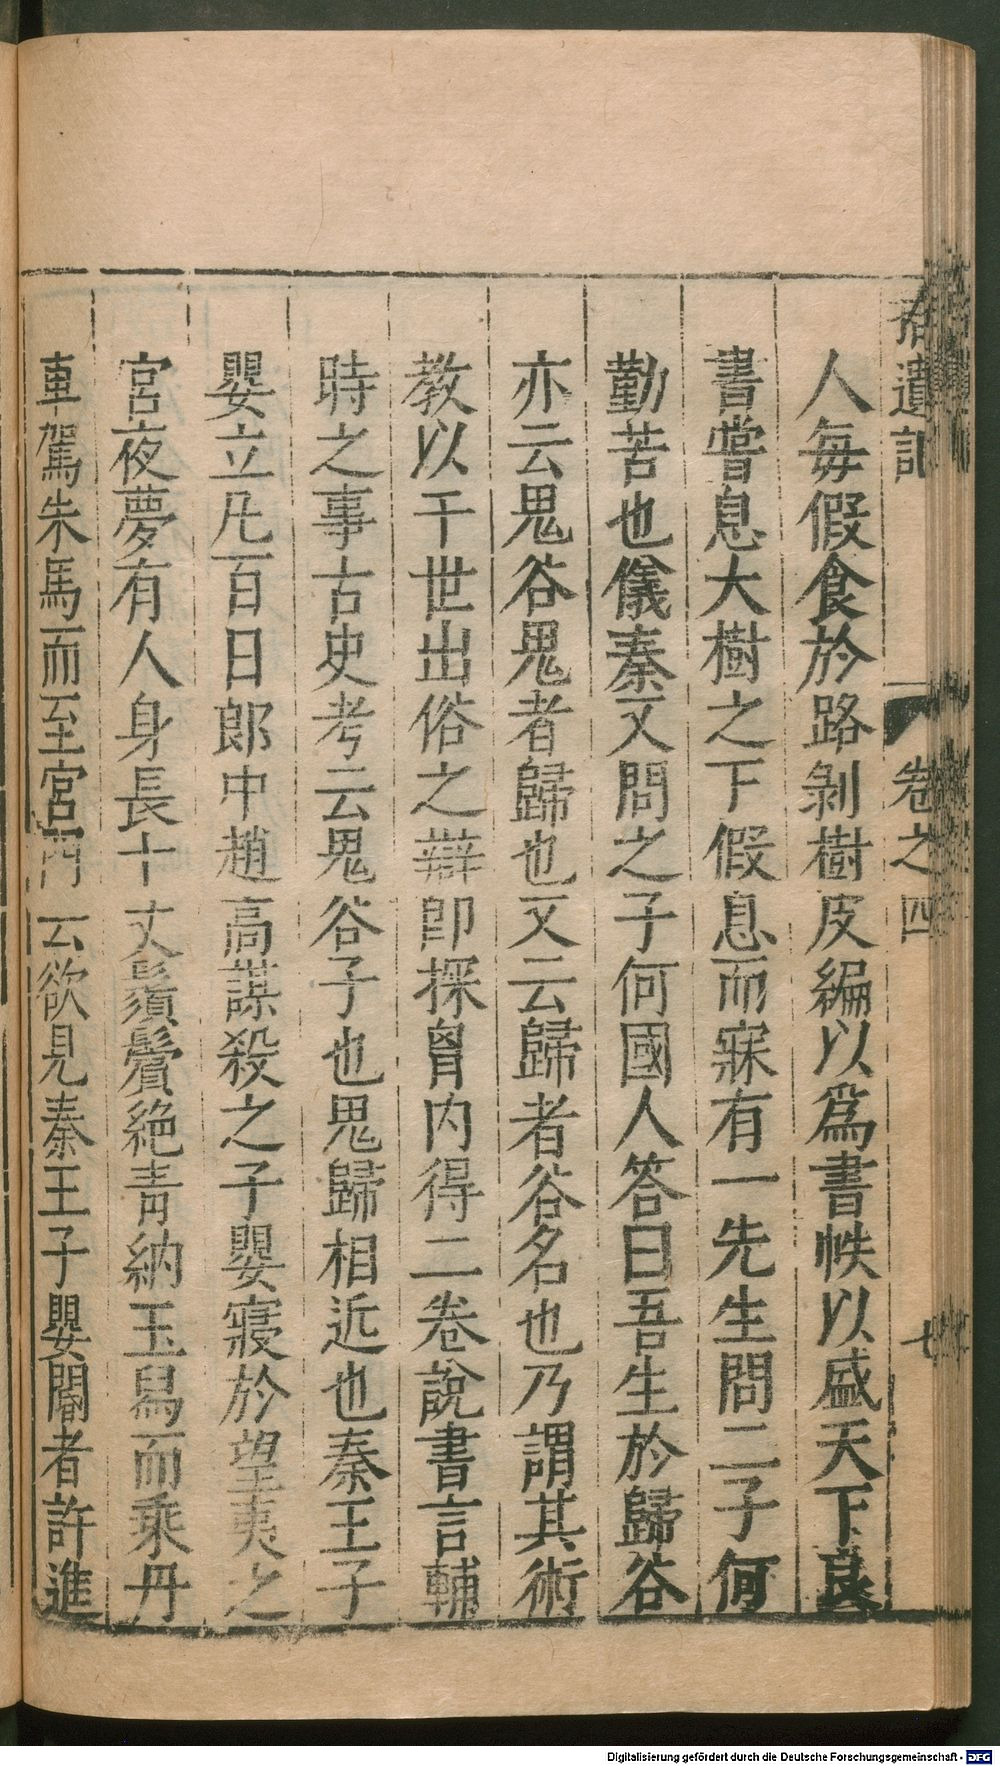 拾遺記 卷之四 七
人毎假食於路剝樹皮編以爲書帙以盛天下良
書嘗息大樹之下假息而寐有一先生問二子何
勤苦也儀秦又問之子何國人答曰吾生於歸谷
亦云鬼谷鬼者歸也又云歸者谷名也乃謂其術
教以干世出俗之辯卽探胷内得二卷說書言輔
時之事古史考云鬼谷子也鬼歸相近也秦王子
嬰立凡百日郎中趙高謀殺之子嬰寢於望夷之
宮夜夢有人身長十丈鬚鬢絶青納玉舄而乘丹
車駕朱馬而至宮門云欲見秦王子嬰閽者許進
Digitalisierung gefördert durch die Deutsche Forschungsgemeinschaft - DFG